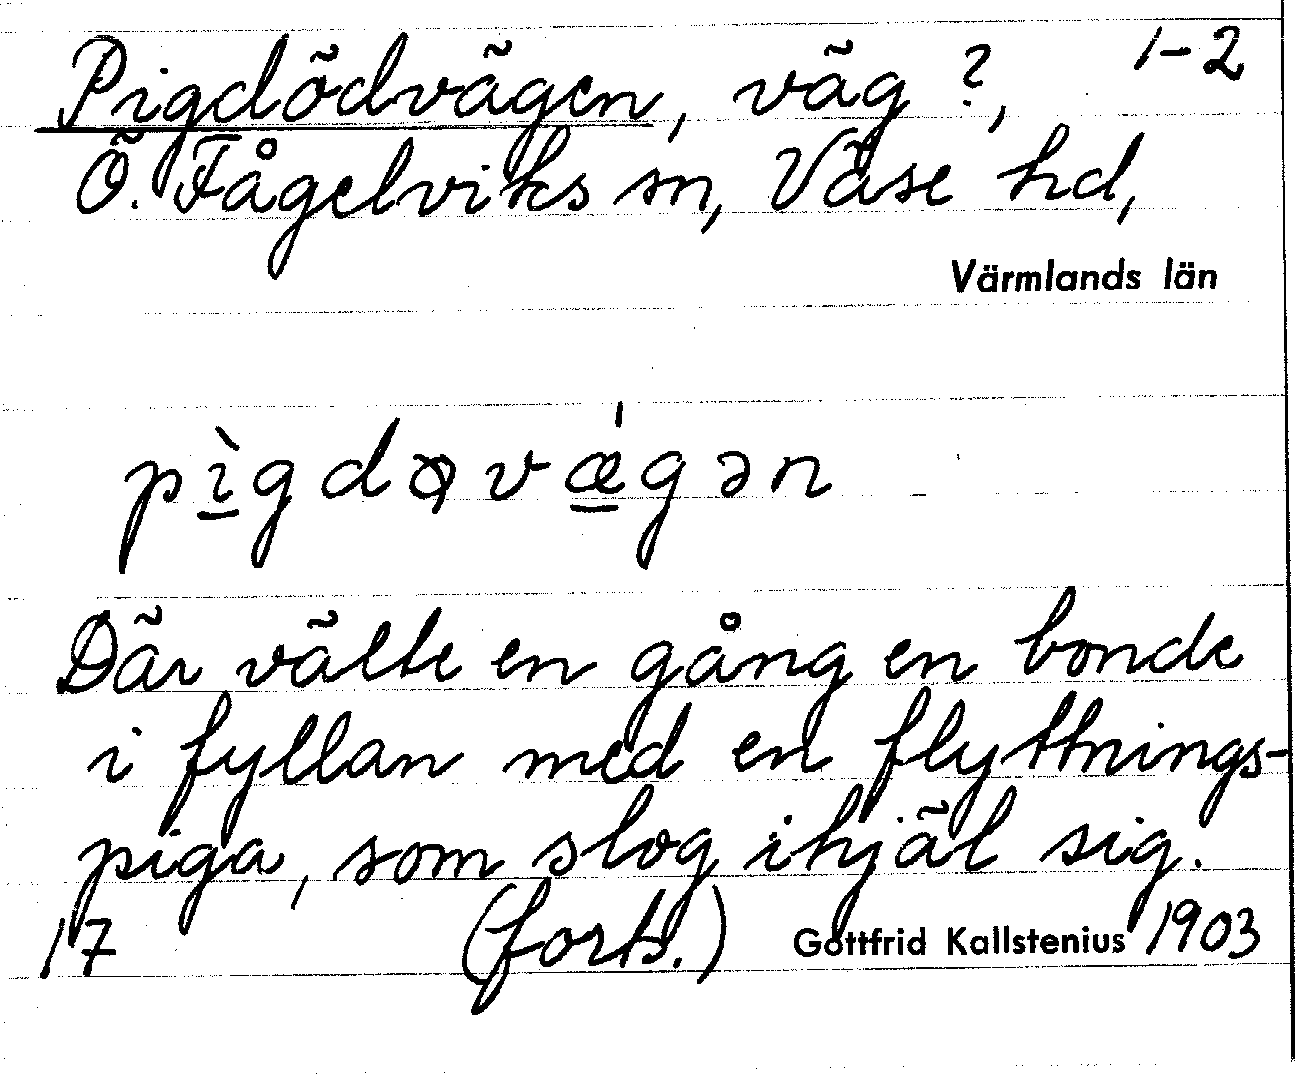 Pigdödvägen, väg ?, 1-2
Ö. Fågelviks sn, Väse hd,
Värmlands län
pìgdøvǽgən
Där välte en gång en bonde
i fyllan med en flyttnings-
piga, som slog ihjäl sig.
17 (forts.) Gottfrid Kallstenius 1903